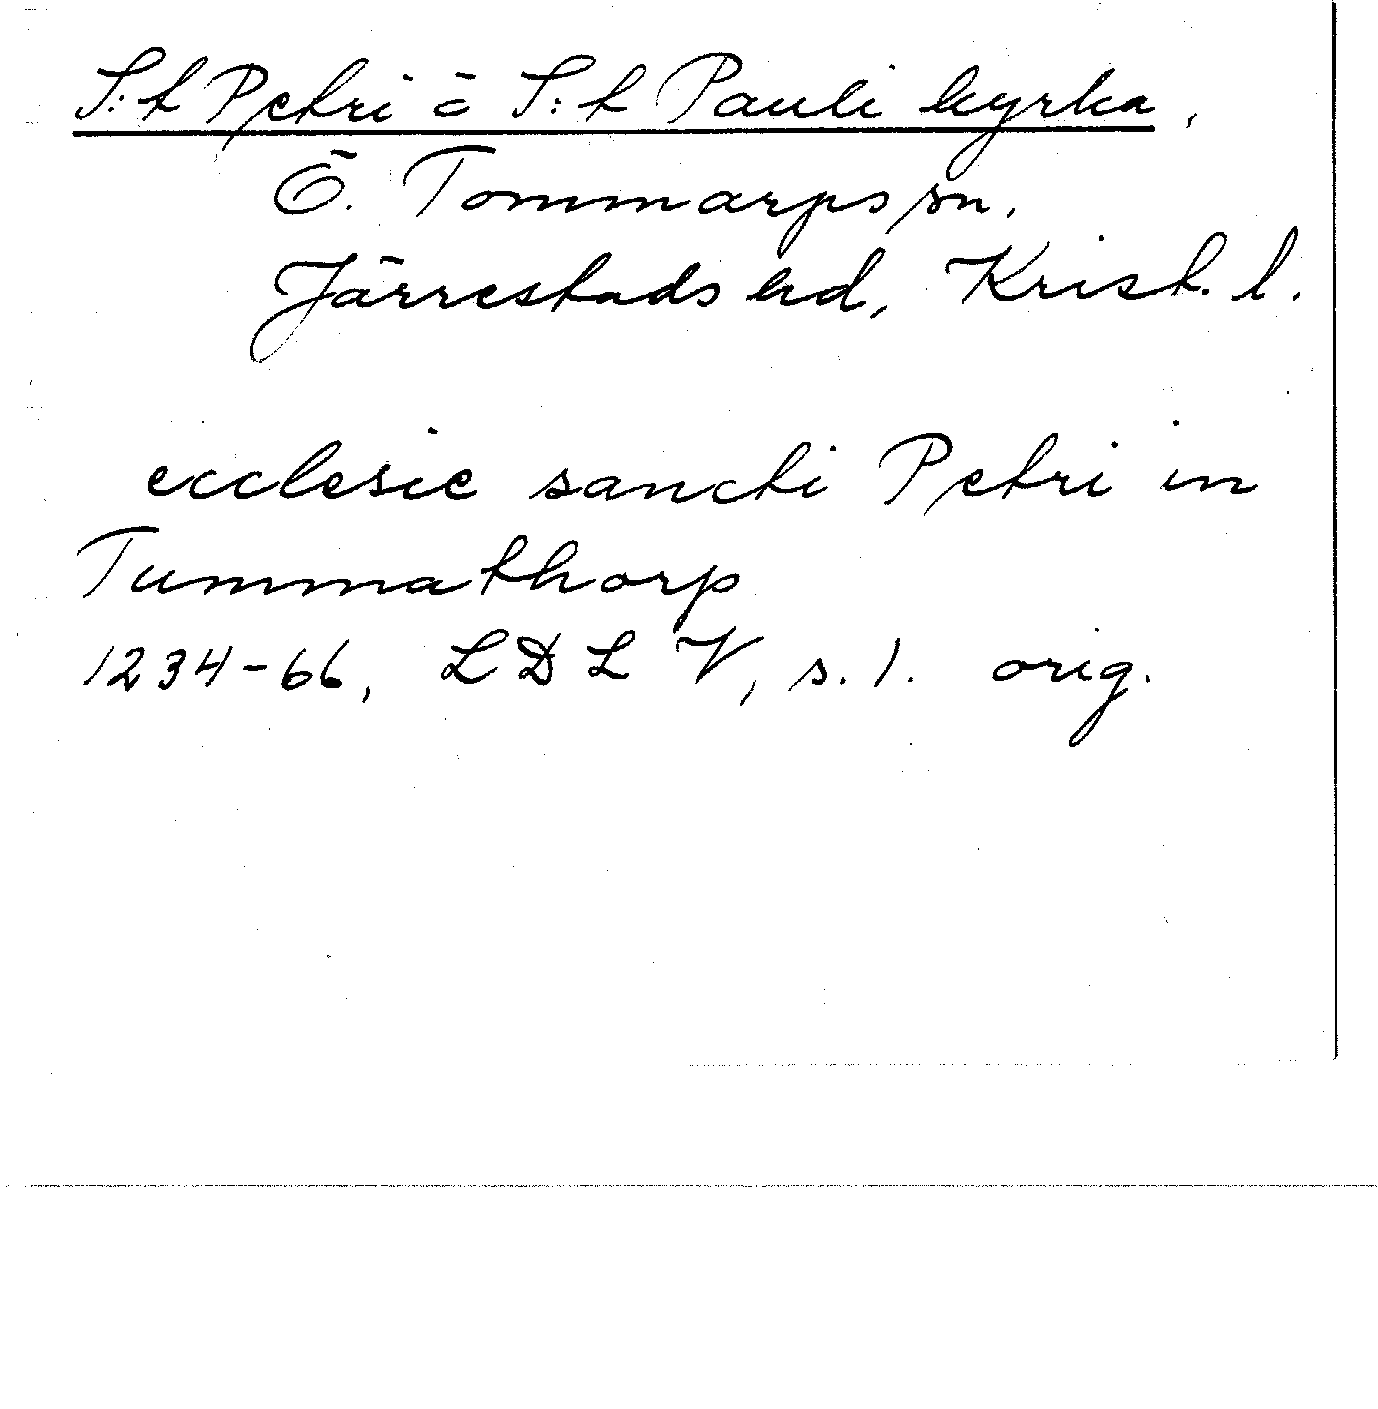 S:t Petri o S:t Pauli kyrka,
Ö. Tommarps sn.
Järrestads hd, Krist. l.
ecclesie sancti Petri in
Tummathorp
1234-66, LDLV, s. 1. orig.